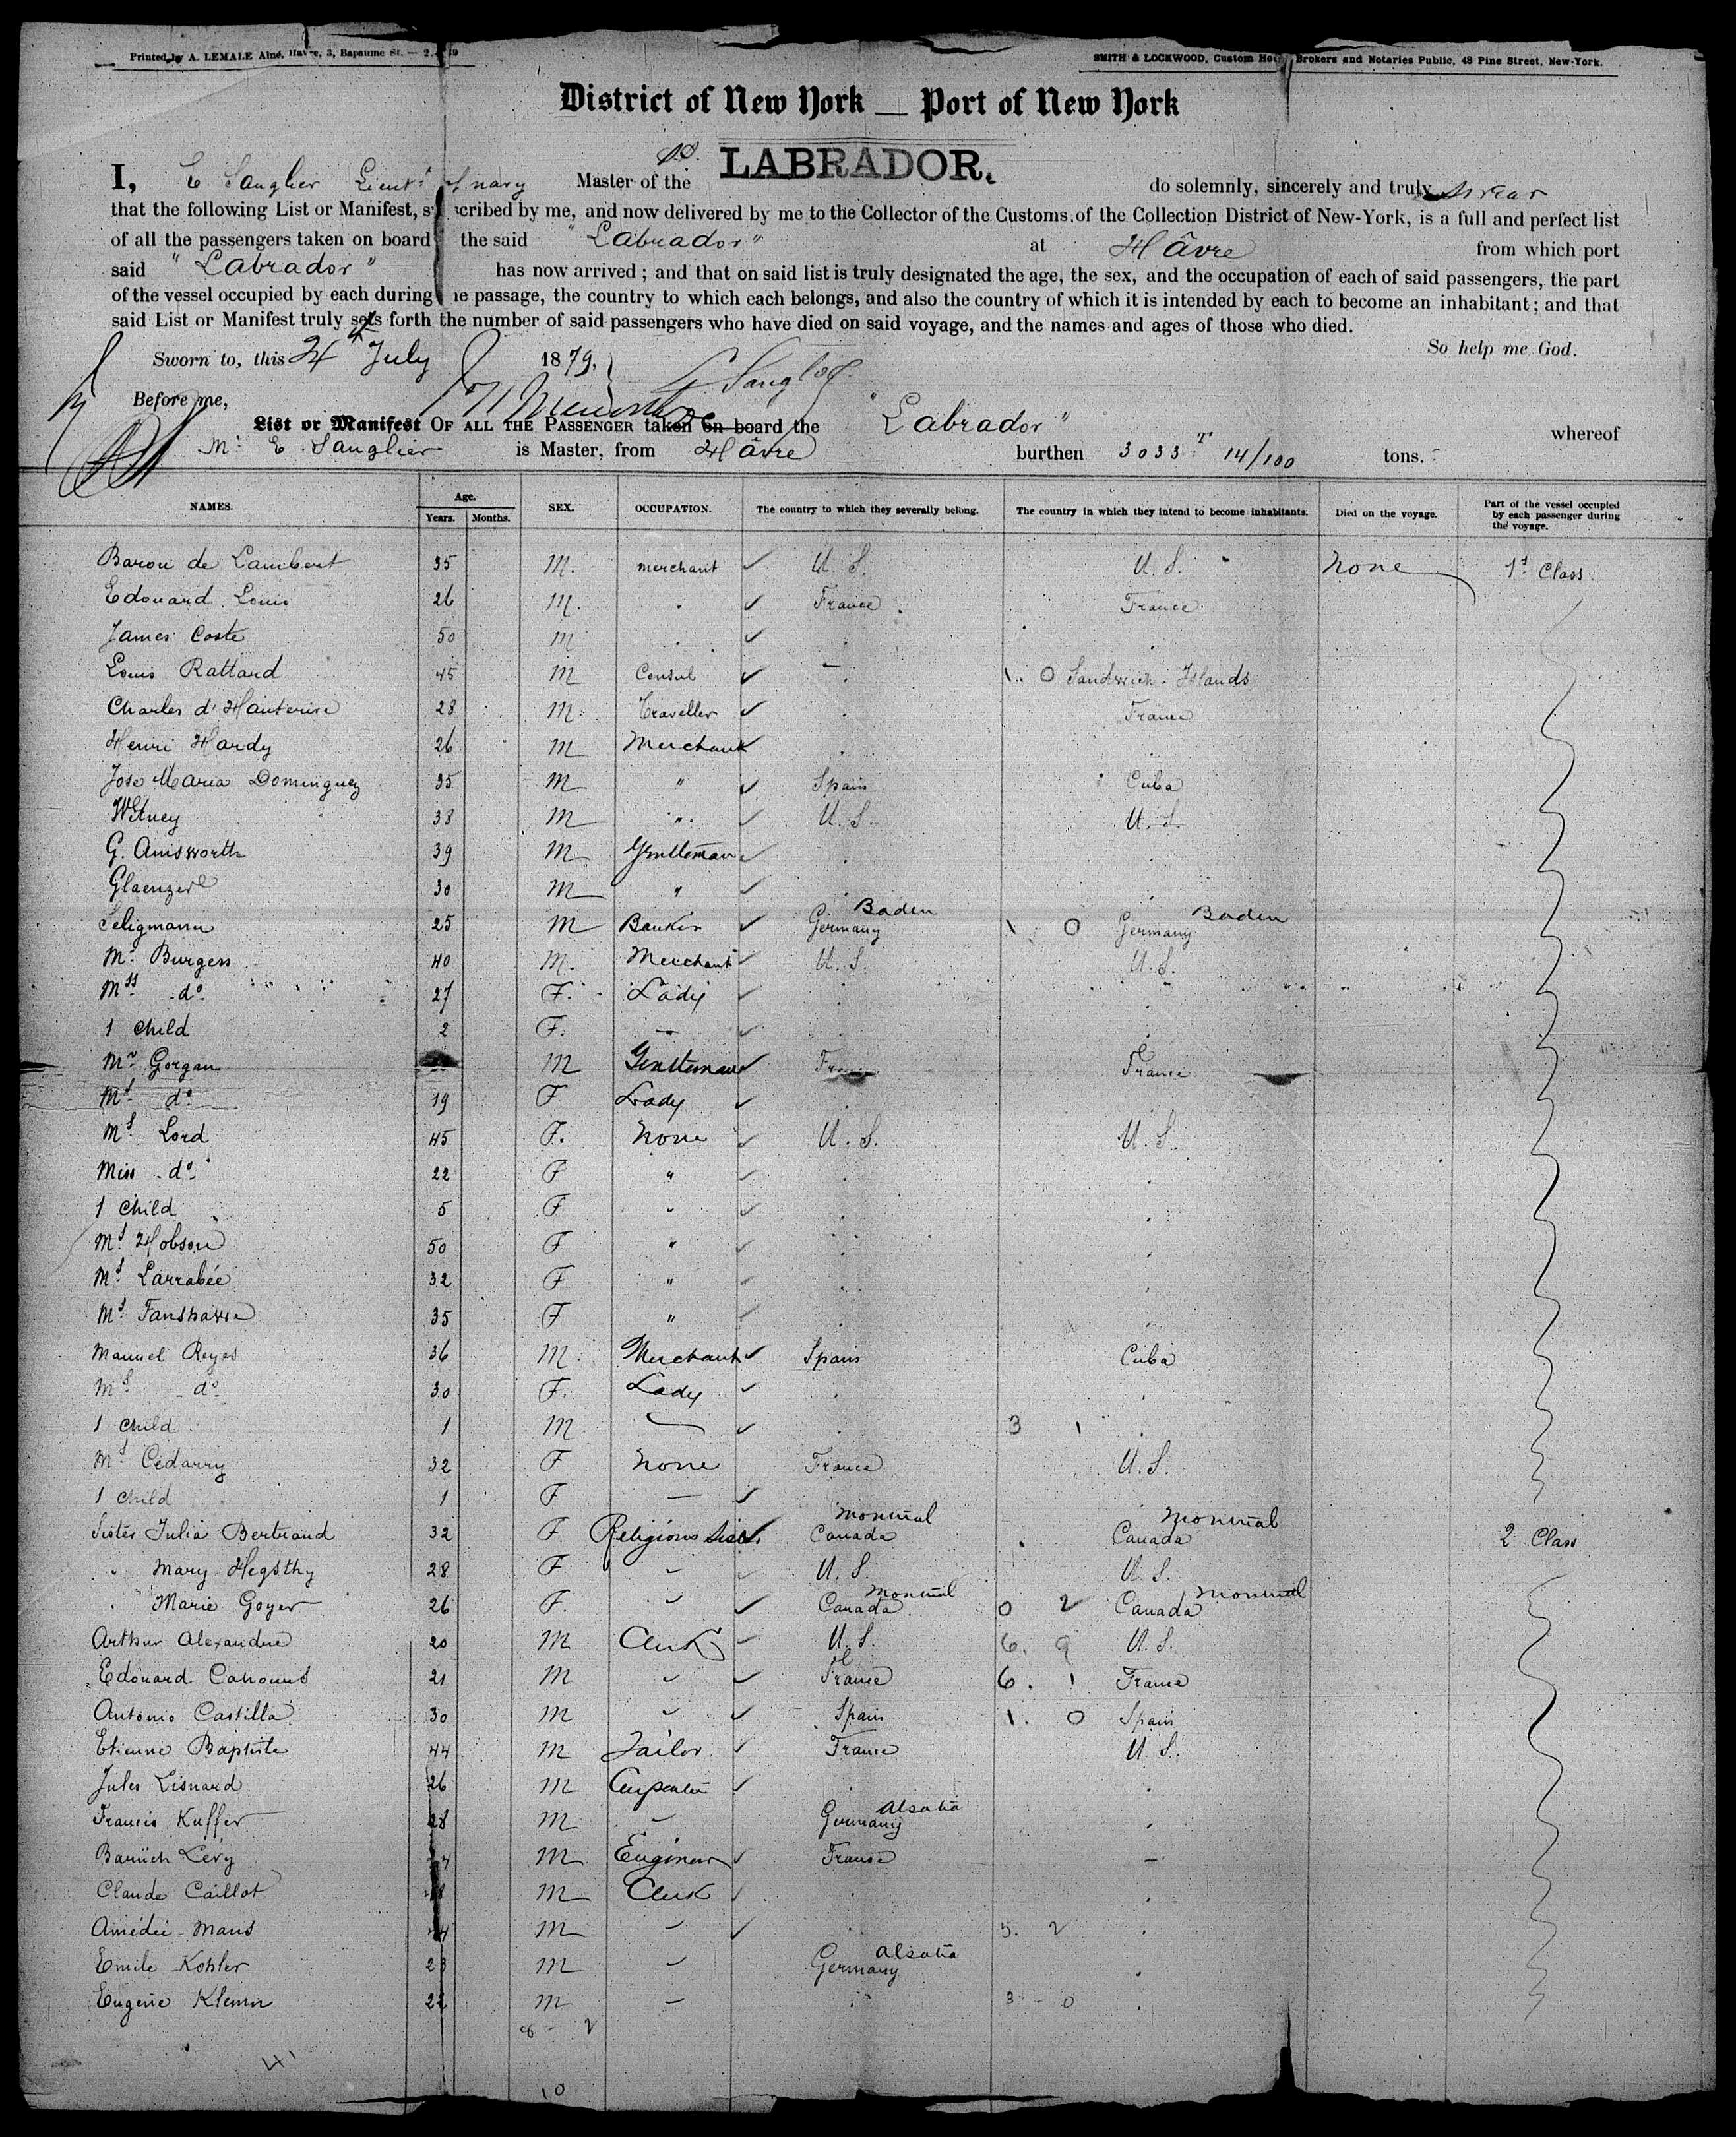 Printed by A. LEMALE Ainé, Havre, 3, Bapaume St. — 2.
SMITH & LOCKWOOD, Custom House Brokers and Notaries Public, 48 Pine Street, New-York.
District of New York — Port of New York
I, E Sanglier Lieut navy Master of the S.S. LABRADOR. do solemnly, sincerely and truly swear
that the following List or Manifest, subscribed by me, and now delivered by me to the Collector of the Customs of the Collection District of New-York, is a full and perfect list
of all the passengers taken on board the said "Labrador" at Hâvre from which port
said "Labrador" has now arrived; and that on said list is truly designated the age, the sex, and the occupation of each of said passengers, the part
of the vessel occupied by each during the passage, the country to which each belongs, and also the country of which it is intended by each to become an inhabitant; and that
said List or Manifest truly sets forth the number of said passengers who have died on said voyage, and the names and ages of those who died.
So help me God.
Sworn to, this 24 July 1879, E Sanglier
Before me,
List or Manifest OF ALL THE PASSENGER taken on board the "Labrador" whereof
Mr. E. Sanglier is Master, from Hâvre burthen 3033 T 14/100 tons.
NAMES. Age. Years. Months. SEX. OCCUPATION. The country to which they severally belong. The country in which they intend to become inhabitants. Died on the voyage. Part of the vessel occupied by each passenger during the voyage.
Baron de Lambert 35 M. merchant U. S. U. S. None 1st Class
Edouard Louis 26 M. . France France
James Coste 50 M .
Louis Rattard 45 M Consul — 1. 0 Sandwich-Islands
Charles d'Hauterive 28 M. Traveller . France
Henri Hardy 26 M Merchant .
Jose Maria Dominguez 35 M " Spain Cuba
Witney 38 M " U. S. U. S.
G. Ainsworth 39 M. Gentleman .
Glaenzer 30 M "
Seligmann 25 M Banker Germany Baden 1 0 Germany Baden
Mr. Burgess 40 M. Merchant U. S. U. S.
Mss do 27 F. Lady
1 Child 2 F. —
Mr Gorgan M Gentleman France France
Ms do 19 F Lady
Ms Lord 45 F. None U. S. U. S.
Miss do 22 F "
1 Child 5 F "
Ms Hobson 50 F "
Ms Larrabée 32 F "
Ms Fanshawe 35 F "
Manuel Reyes 36 M Merchant Spain Cuba
Ms do 30 F. Lady
1 Child 1 M — 3 1
Ms Cedarry 32 F None France U. S.
1 Child 1 F —
Sister Julia Bertrand 32 F Religious Sister Canada Montreal Canada Montreal 2 Class
" Mary Hegsthy 28 F " U. S. U. S.
" Marie Goyer 26 F. " Canada Montreal 0 2 Canada Montreal
Arthur Alexandre 20 M Clerk U. S. 6. 9 U. S.
Edouard Cahouns 21 M " France 6. 1 France
Antonio Castilla 30 M " Spain 1. 0 Spain
Etienne Baptiste 44 M Tailor France U. S.
Jules Lisnard 26 M Carpenter
Francis Kuffer 28 M — Germany Alsatia
Barüch Lévy M Engineer France —
Claude Caillot M Clerk
Amédée Mans M — 5. 2
Emile Kohler 23 M — Germany Alsatia
Eugène Klemm 22 M — 3 - 0
8 - 2
41
10